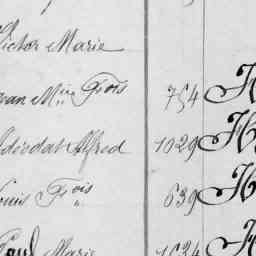 Victor Marie
Jean M.ie Fçois 754 H
Adéodat Alfred 1029 H
Louis Fçois 639 H
Paul Marie 1634 H